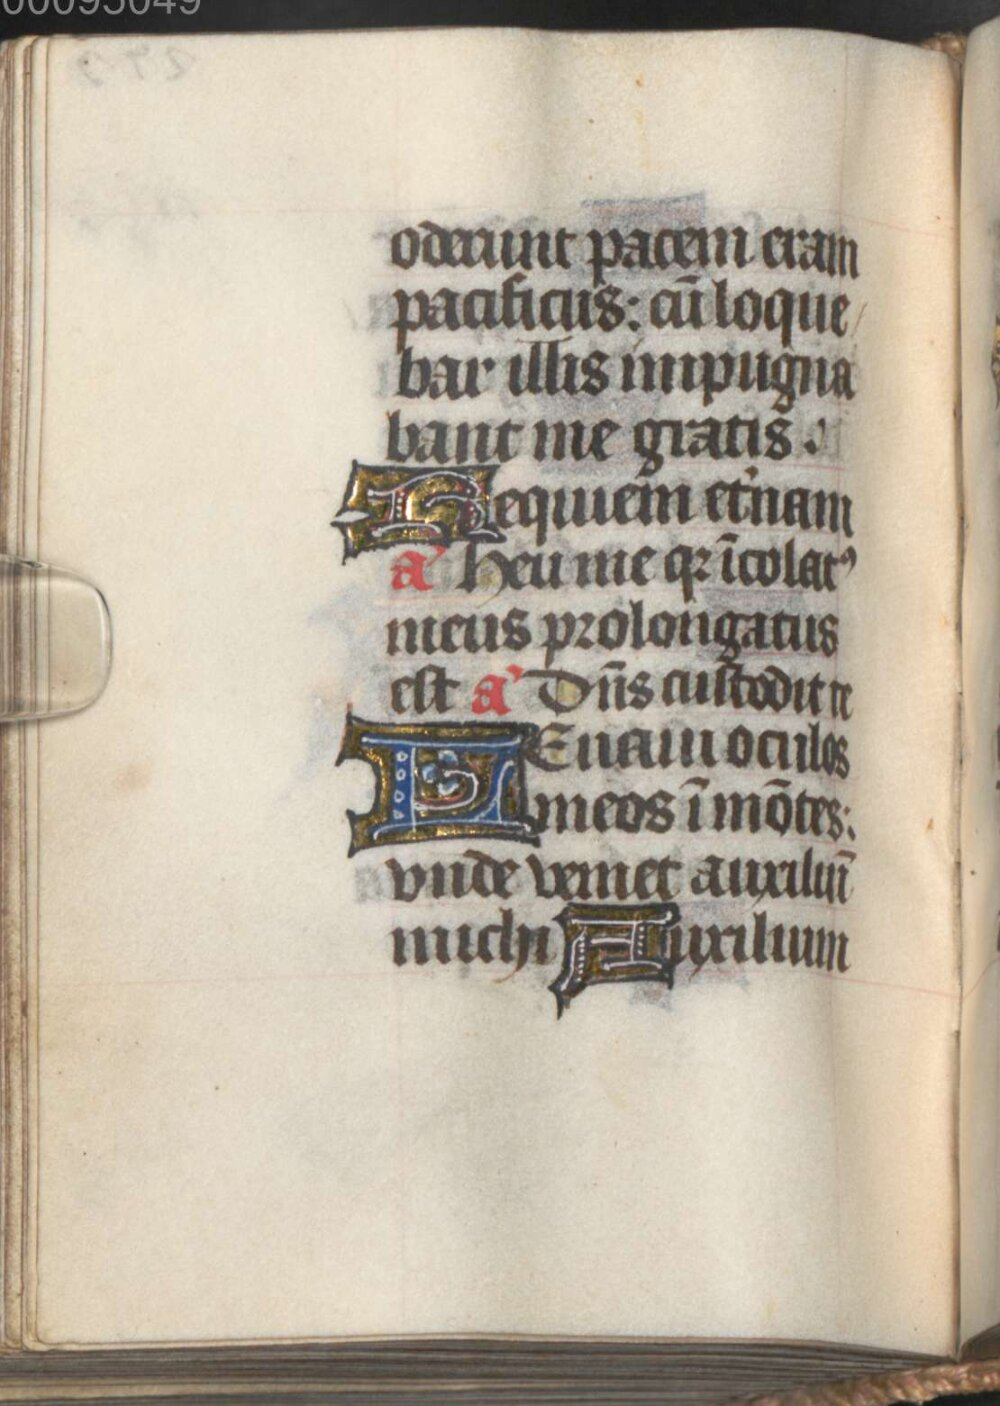 00095049
oderunt pacem eram
pacificus: cū loque
bar illis impugna
bant me gratis.
Requiem et'nam
a' Heu me qꝛ īcolatꝰ
meus prolongatus
est a' Dn̄s custodit te
LEuaui oculos
meos ī mōtes:
vnde veniet auxiliū
michi Auxilium